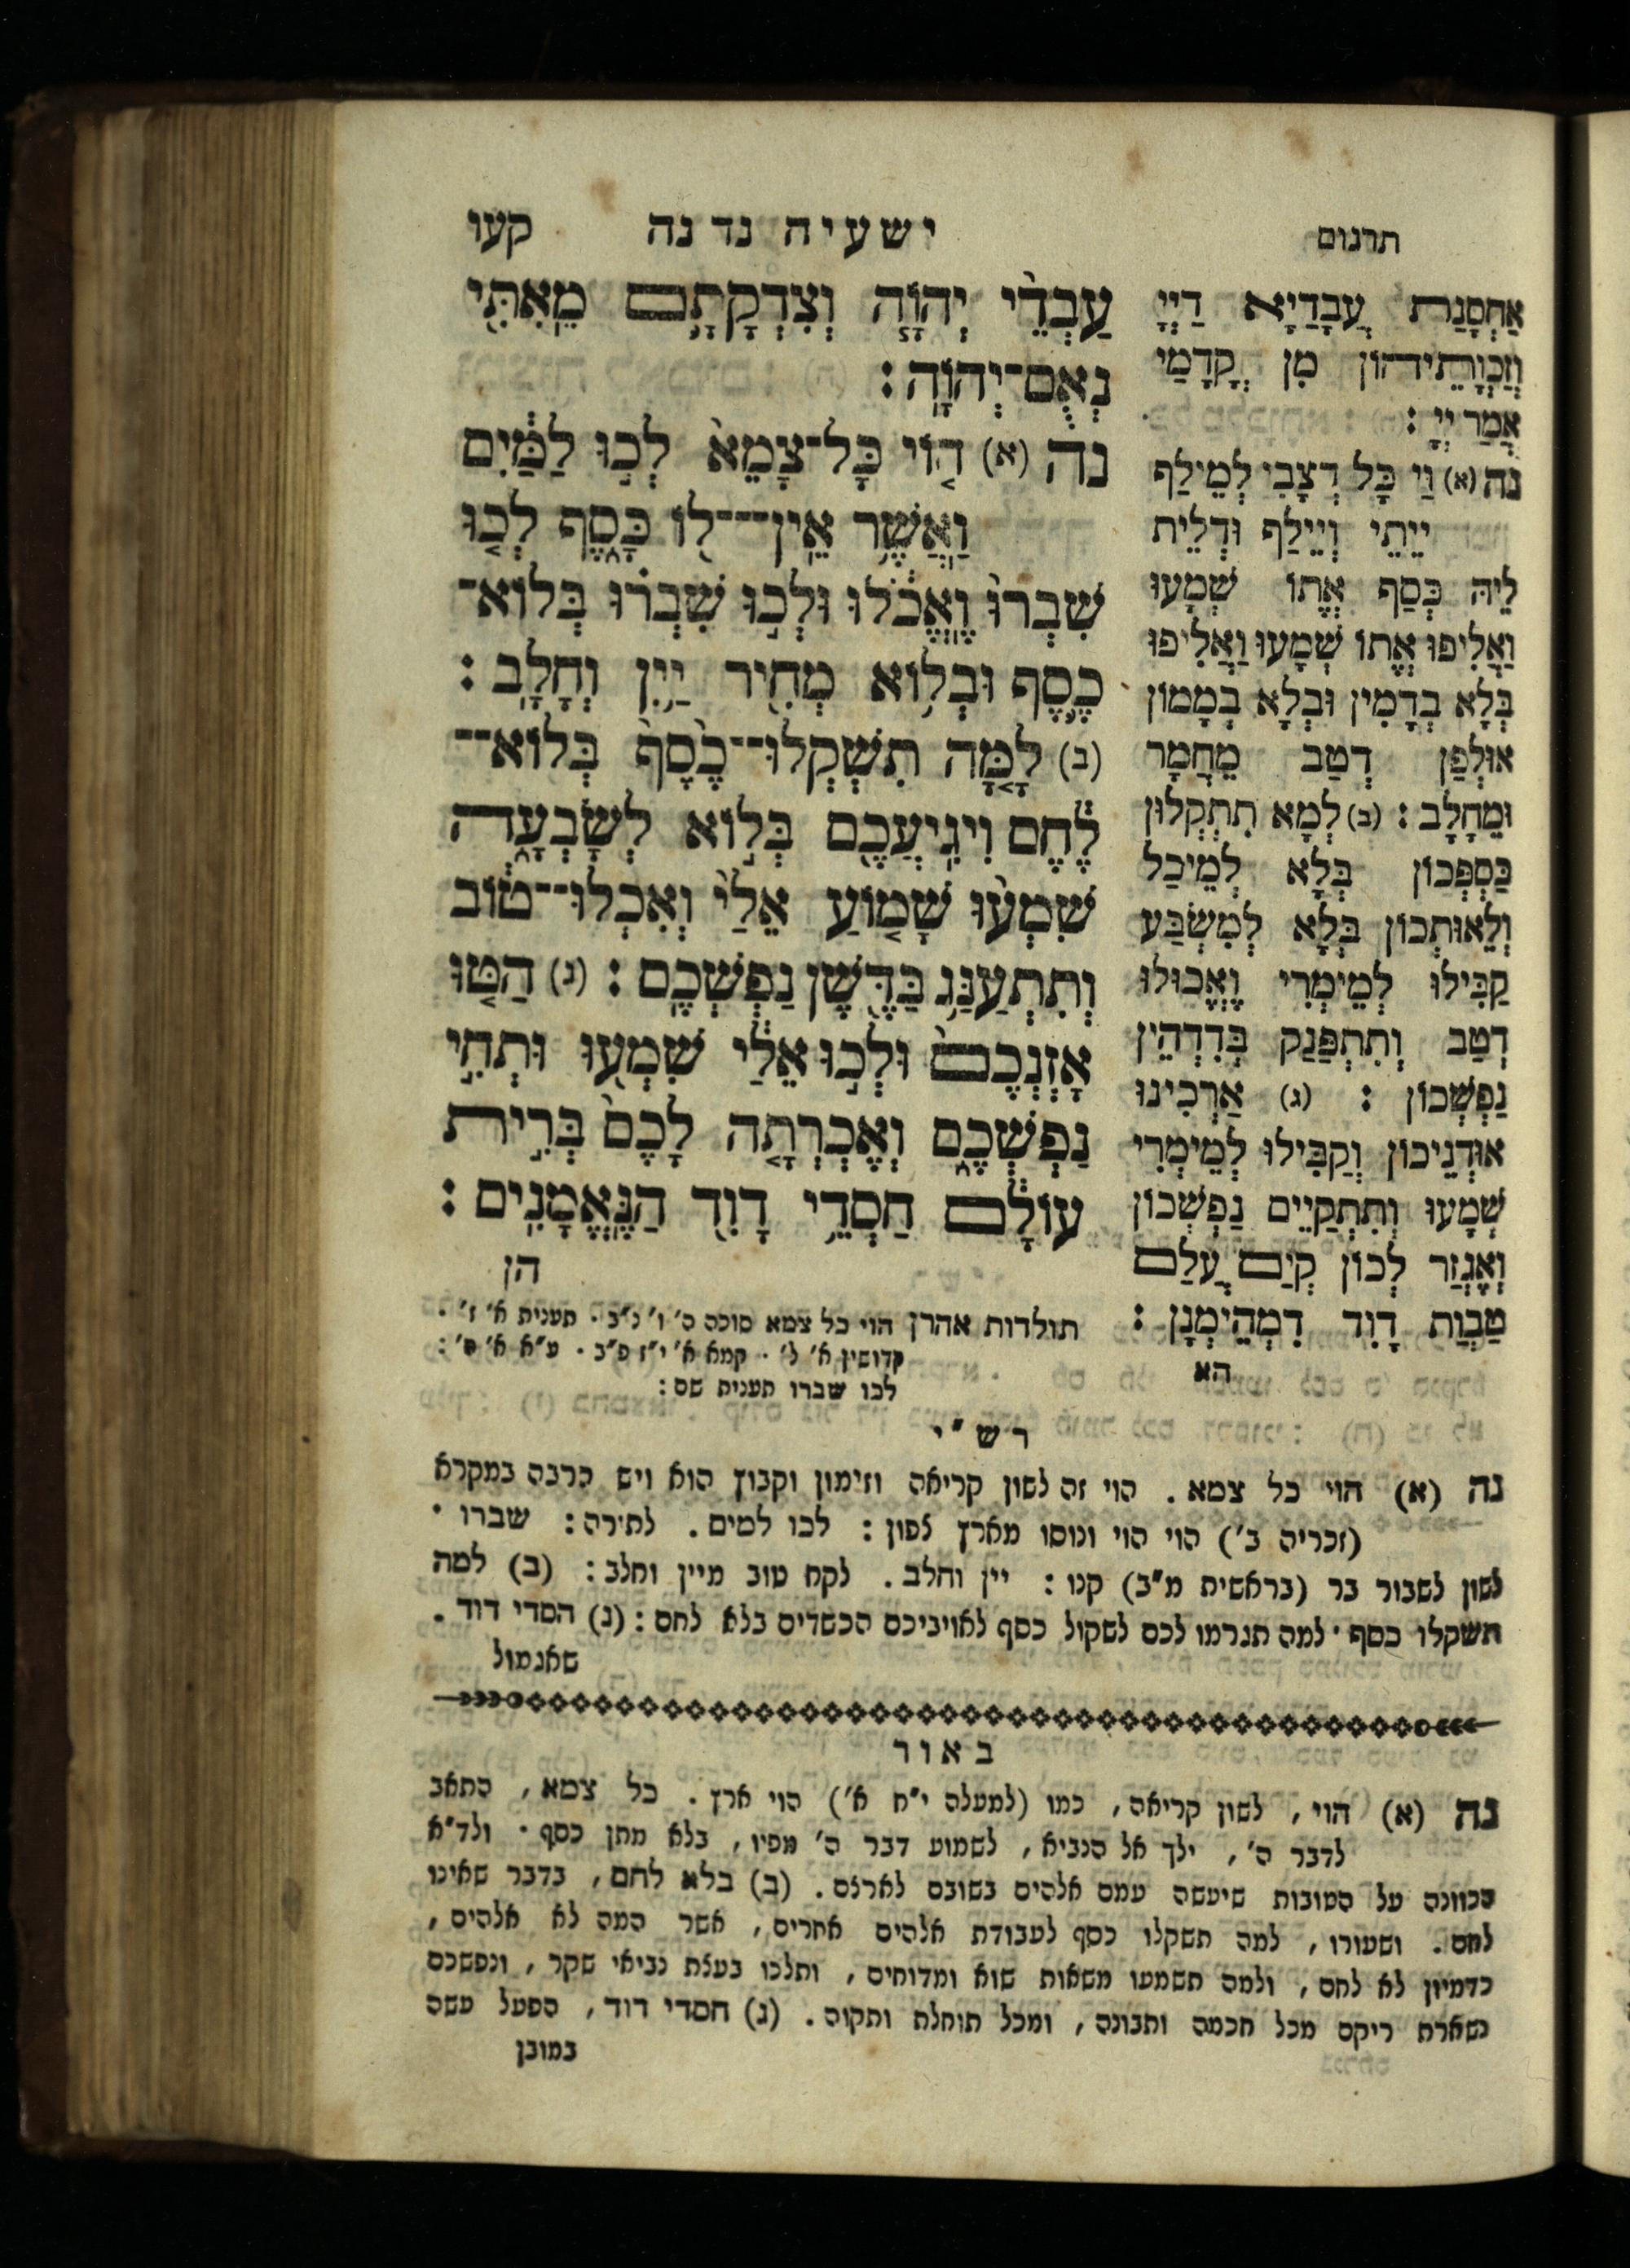 תרגום
ישעיה נד נה
קעו
עַבְדֵי יְהוָֹה וְצִדְקָתָם מֵאִתִּי
נְאֻם־יְהוָֹה׃
נה (א) הוֹי כָּל־צָמֵא לְכוּ לַמַּיִם
וַאֲשֶׁר אֵין־־לוֹ כָּסֶף לְכוּ
שִׁבְרוּ וֶאֱכֹלוּ וּלְכוּ שִׁבְרוּ בְּלוֹא־
כֶסֶף וּבְלוֹא מְחִיר יַיִן וְחָלָב׃
(ב) לָמָּה תִשְׁקְלוּ־־כֶסֶף בְּלוֹא־־
לֶחֶם וִיגִיעֲכֶם בְּלוֹא לְשָׂבְעָה
שִׁמְעוּ שָׁמוֹעַ אֵלַי וְאִכְלוּ־־טוֹב
וְתִתְעַנַּג בַּדֶּשֶׁן נַפְשְׁכֶם׃ (ג) הַטּוּ
אָזְנְכֶם וּלְכוּ אֵלַי שִׁמְעוּ וּתְחִי
נַפְשְׁכֶם וְאֶכְרְתָה לָכֶם בְּרִית
עוֹלָם חַסְדֵי דָוִד הַנֶּאֱמָנִים׃
הן
אַחְסָנַת עֲבָדַיָא דַיְיָ
וְזָכְוָתֵיהוֹן מִן קֳדָמַי
אֲמַר יְיָ׃
נה (א) וַי כָּל דְצָבִי לְמֵילַף
יֵיתֵי וְיֵילַף וּדְלֵית
לֵיהּ כְּסַף אֱתוֹ שְׁמָעוּ
וַאֲלִיפוּ אֱתוֹ שְׁמָעוּ וַאֲלִיפוּ
בְּלָא בִדְמִין וּבְלָא בְמָמוֹן
אוּלְפַן דְטַב מֵחֲמָר
וּמֵחָלָב׃ (ב) לְמָא תִתְקְלוּן
כַּסְפְּכוֹן בְּלָא לְמֵיכַל
וְלֵאוּתְכוֹן בְּלָא לְמִשְׂבַּע
קַבִּילוּ לְמֵימְרִי וֶאֱכוּלוּ
דְטַב וְתִתְפַּנַק בְּדִדְהֵין
נַפְשְׁכוֹן׃ (ג) אַרְכִינוּ
אוּדְנֵיכוֹן וְקַבִּילוּ לְמֵימְרִי
שְׁמָעוּ וְתִתְקַיֵּים נַפְשְׁכוֹן
וְאֶגְזַר לְכוֹן קְיַם עֲלַם
טַבְוַת דָוִד דִמְהֵימְנָן׃
הא
תולדות אהרן הוי כל צמא סוכה ה' ו' נ"ב. תענית א' ז'.
קדושין א' ל'. קמא א' י"ז פ"ב. ע"א א' ס':
לכו שברו תענית שם:
רש"י
נה (א) הוי כל צמא. הוי זה לשון קריאה וזימון וקבוץ הוא ויש הרבה במקרא
(זכריה ב') הוי הוי ונוסו מארץ צפון: לכו למים. לתורה: שברו.
לשון לשבור בר (בראשית מ"ב) קנו: יין וחלב. לקח טוב מיין וחלב: (ב) למה
תשקלו כסף. למה תגרמו לכם לשקול כסף לאויביכם הכשדים בלא לחם: (ג) חסדי דוד.
שאגמול
באור
נה (א) הוי, לשון קריאה, כמו (למעלה י"ח א') הוי ארץ. כל צמא, התאב
לדבר ה', ילך אל הנביא, לשמוע דבר ה' מפיו, בלא מתן כסף. ולד"א
הכוונה על הטובות שיעשה עמם אלהים בשובם לארצם. (ב) בלא לחם, בדבר שאינו
לחם. ושעורו, למה תשקלו כסף לעבודת אלהים אחרים, אשר המה לא אלהים,
כדמיון לא לחם, ולמה תשמעו משאות שוא ומדוחים, ותלכו בעצת נביאי שקר, ונפשכם
נשארת ריקם מכל חכמה ותבונה, ומכל תוחלת ותקוה. (ג) חסדי דוד, הפעל עשה
במובן